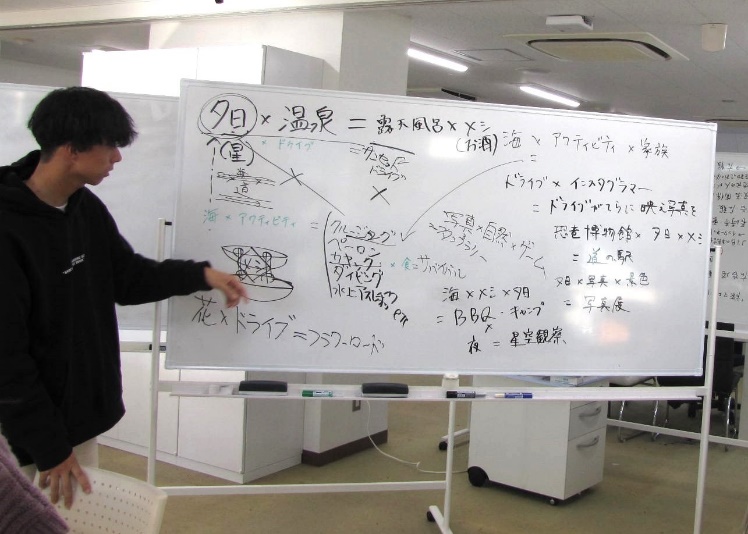 夕日 × 温泉 = 露天風呂 × メシ
(お酒)
(星)
× ドライブ
= サンセット
ドライブ
×
道
海 × アクティビティ
= クルージング
ペーロン
カヤック
ダイビング
水上
etc
× 食 = サバイバル
花 × ドライブ = フラワーロード
海 × アクティビティ × 家族
=
ドライブ × インスタグラマー
= ドライブがてらに 映え写真を
恐竜博物館 × 夕日 × メシ
= 道の駅
夕日 × 写真 × 景色
= 写真展
写真 × 自然 × ゲーム
海 × メシ × 夕日
= BBQ・キャンプ
×
夜 = 星空観察